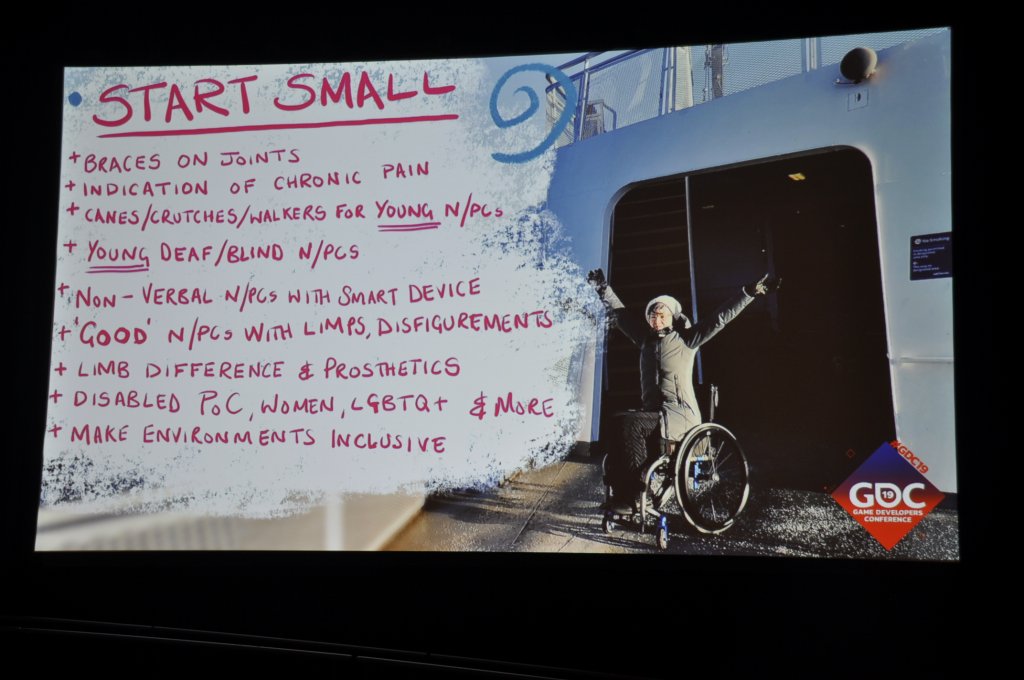 START SMALL
+ BRACES ON JOINTS
+ INDICATION OF CHRONIC PAIN
+ CANES/CRUTCHES/WALKERS FOR YOUNG N/PCs
+ YOUNG DEAF/BLIND N/PCs
+ NON-VERBAL N/PCs WITH SMART DEVICE
+ 'GOOD' N/PCs WITH LIMPS, DISFIGUREMENTS
+ LIMB DIFFERENCE & PROSTHETICS
+ DISABLED PoC, WOMEN, LGBTQ+ & MORE
+ MAKE ENVIRONMENTS INCLUSIVE
#GDC19
GDC
19
GAME DEVELOPERS
CONFERENCE